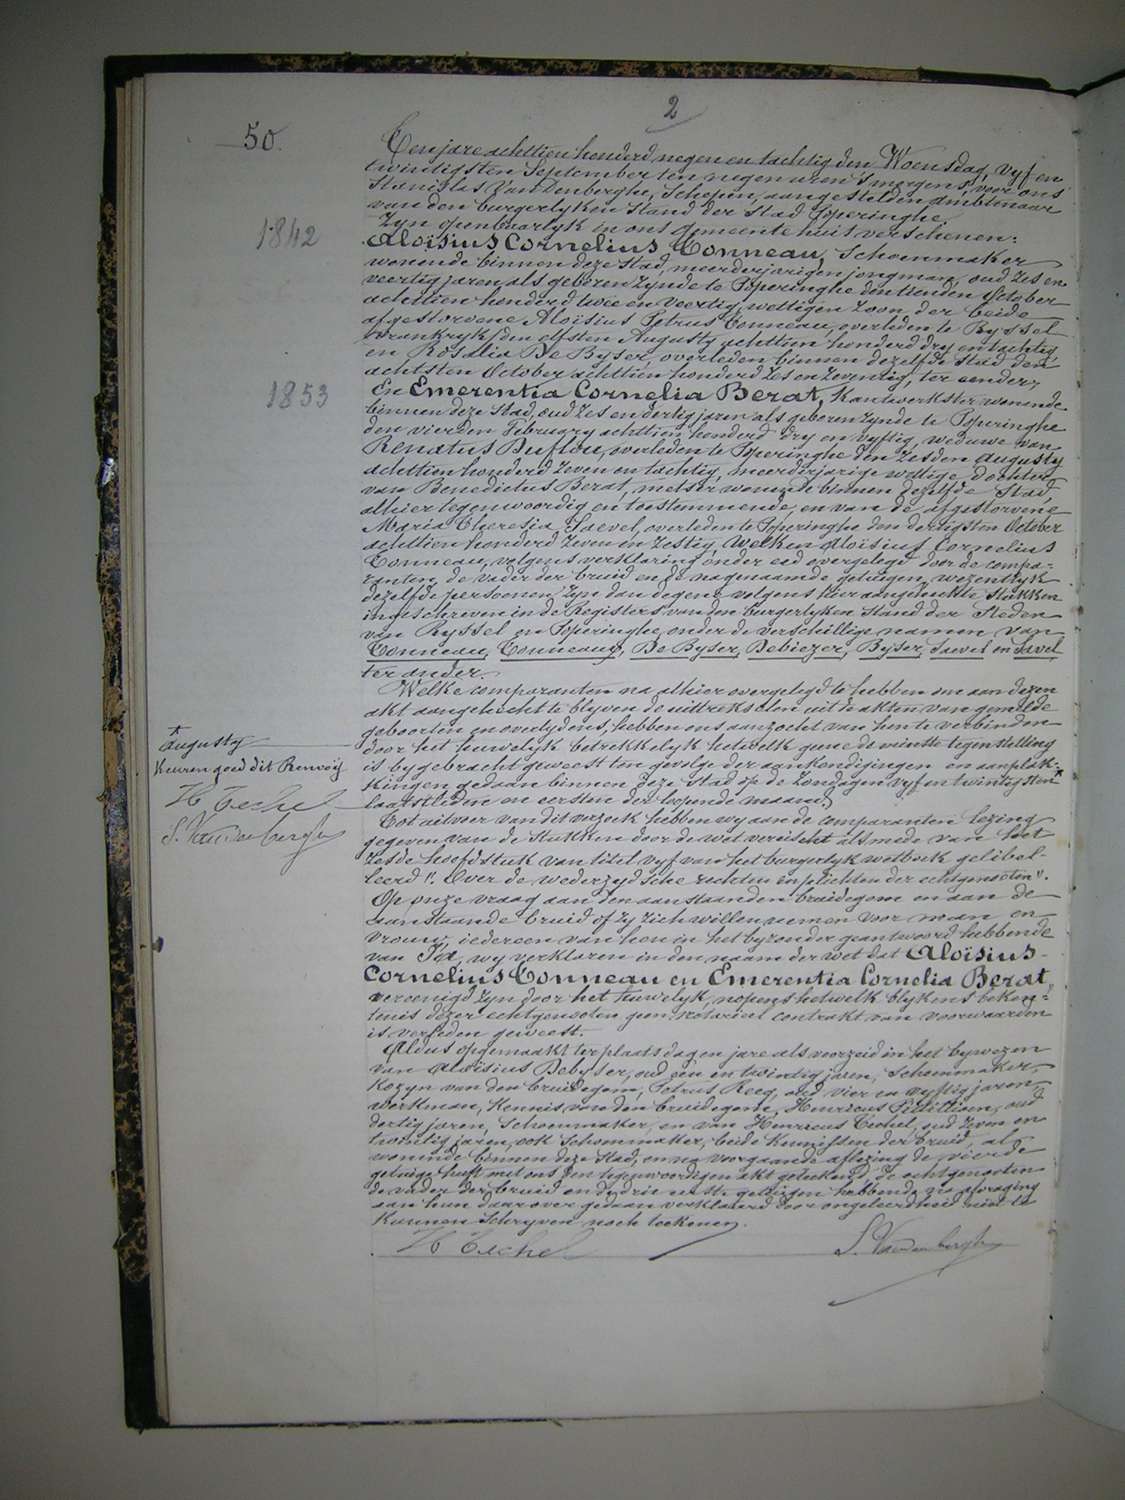 2
50.
Ten jare achttien honderd negen en tachtig den Woensdag, vyf en
twintigsten September ten negen uren 's morgens, voor ons
Stanislas Vandenberghe, Schepen, aangestelden ambtenaar
van den burgerlyken Stand der Stad Poperinghe
Zyn openbaarlyk in ons gemeentehuis verschenen:
1842
Aloïsius Cornelius Tonneau, Schoenmaker
wonende binnen deze Stad, meerderjarigen jongman, oud zes en
veertig jaren, als geboren zynde te Poperinghe den tienden October
achttien honderd twee en veertig, wettigen zoon der beide
afgestorvene Aloïsius Petrus Tonneau, overleden te Ryssel
Frankryk, den elfsten Augusty achttien honderd dry en tachtig,
en Rosalia De Byser, overleden binnen dezelfde Stad den
achtsten October achttien honderd zes en zeventig, ter eender,
1853
En Emerentia Cornelia Berat, Kantwerkster wonende
binnen deze Stad, oud zes en dertig jaren als geboren zynde te Poperinghe
den vierden February achttien honderd dry en vyftig, weduwe van
Renatus Duflou, overleden te Poperinghe den zesden Augusty
achttien honderd zeven en tachtig, meerderjarige wettige dochter
van Benedictus Berat, metser wonende binnen dezelfde Stad,
alhier tegenwoordig en toestemmende, en van de afgestorvene
Maria Theresia Saevel, overleden te Poperinghe den dertigsten October
achttien honderd zeven en zestig, Welken Aloïsius Cornelius
Tonneau, volgens verklaring onder eed overgelegd door de compa-
ranten, de vader der bruid en de nagenaamde getuigen, wezentlyk
dezelfde persoonen zyn dan degene volgens hier aangehechte Stukken
ingeschreven in de Registers van den burgerlyken Stand der Steden
van Ryssel en Poperinghe, onder de verschillige namen van
Tonneau, Tonneaux, De Byser, Debiezer, Byser, Saevel en Savel
ter ander.
Welke comparanten na alhier overgelegd te hebben om aan dezen
akt aangehecht te blyven de uittreksels uit de akten van gemelde
geboorten en overlydens, hebben ons aanzocht van hen te verbinden
door het huwelyk betrekkelyk hetwelk geene de minste tegenstelling
is bygebracht geweest ten gevolge der aankondigingen en aanplak-
kingen gedaan binnen deze Stad op de Zondagen vyf en twintigsten +
laatstleden en eersten der loopende maand.
+ augusty
Keuren goed dit Renvoij
H Techel
S. Vandenberghe
Tot uitvoer van dit verzoek hebben wy aan de comparanten lezing
gegeven van de Stukken door de wet vereischt alsmede van het
zesde hoofdstuk van titel vyf van het burgerlyk wetboek gelibel-
leerd ". Over de wederzydsche rechten en plichten der echtgenooten".
Op onze vraag aan den aanstaanden bruidegom en aan de
aanstaande bruid of zy zich willen nemen voor man en
vrouw, iedereen van hen in het byzonder geantwoord hebbende
van Ja, wy verklaren in den naam der wet dat Aloïsius
Cornelius Tonneau en Emerentia Cornelia Berat,
vereenigd zyn door het huwelyk, nopens hetwelk blykens beken-
tenis dezer echtgenooten geen notarieel contrakt van voorwaarden
is verleden geweest.
Aldus opgemaakt ter plaats dag en jare als voorzeid in het bywezen
van Aloïsius Debyser, oud een en twintig jaren, Schoenmaker,
kozyn van den bruidegom, Petrus Reeg, oud vier en vyftig jaren,
werkman, kennis van den bruidegom, Henricus oud
dertig jaren, Schoenmaker, en van Henricus Techel, oud zeven en
twintig jaren, ook Schoenmaker, beide kennissen der bruid, al
wonende binnen deze Stad, en na voorgaande aflezing de vierde
getuige heeft met ons den tegenwoordigen akt geteekend, de echtgenooten
de vader der bruid en de drie eerste getuigen hebbende na afvraging
aan hun daarover gedaan verklaard door ongeleerdheid niet te
kunnen Schryven noch teekenen.
H Techel S. Vandenberghe